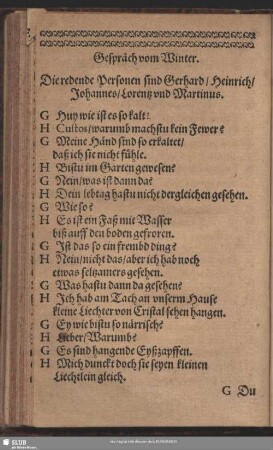 Gespräch vom Winter.
Die redende Personen sind Gerhard/ Heinrich/
Johannes/ Lorentz vnd Martinus.
G Huy wie ist es so kalt!
H Custos/ warumb machstu kein Fewer?
G Meine Händ sind so erkaltet/
daß ich sie nicht fühle.
H Bistu im Garten gewesen?
G Nein/ was ist dann da?
H Dein lebtag hastu nicht dergleichen gesehen.
G Wie so?
H Es ist ein Faß mit Wasser
biß auff den boden gefroren.
G Ist das so ein frembd ding?
H Nein/ nicht das/ aber ich hab noch
etwas seltzamers gesehen.
G Was hastu dann da gesehen?
H Ich hab am Tach an vnserm Hause
kleine Liechter von Cristal sehen hangen.
G Ey wie bistu so närrisch?
H Lieber/ Warumb?
G Es sind hangende Eyßzapffen.
H Mich dunckt doch sie seyen kleinen
Liechtlein gleich.
G Du
SLUB